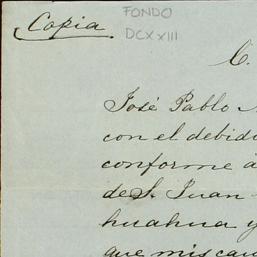 Copia
FONDO
DCXXIII
C.
José Pablo
con el debid
conforme a
de S. Juan
huahua y
que mis cau